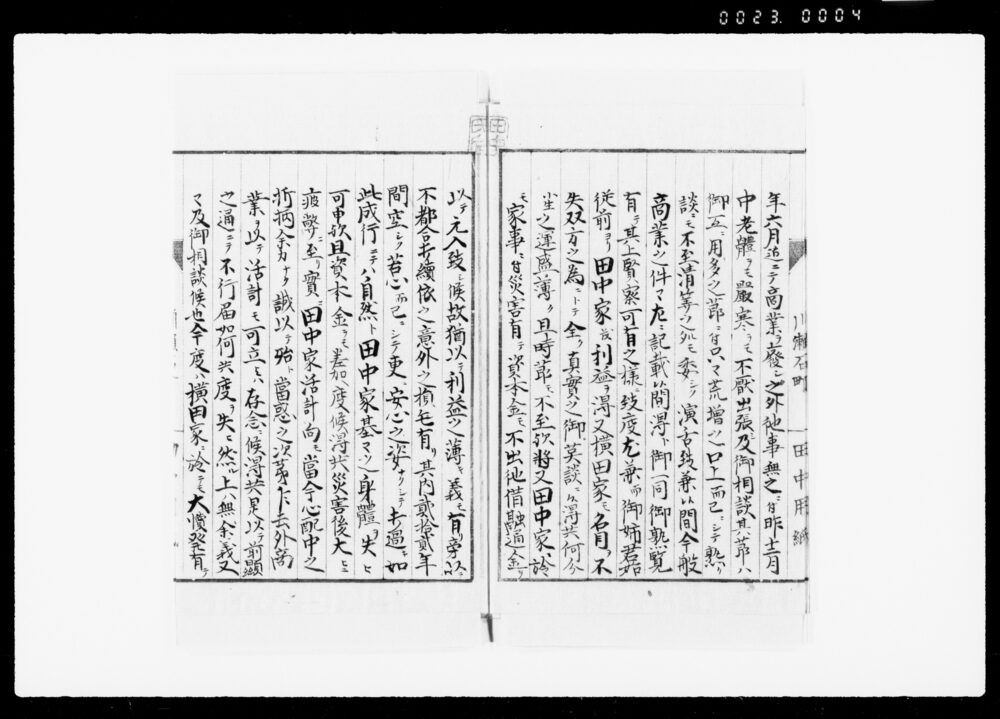 0023. 0004
川瀬石町 田中用紙
年六月迄ニテ商業ヲ廢シ之外他事無之ニ付昨十二月
中老體ヲモ嚴寒ヲモ不厭出張及御相談其節ハ
御互ニ用多之節ニ付只々荒増之口上而已ニシテ熟
談ニモ不至清等之処モ委シク演舌致兼候間今般
商業之件々左ニ記載候間得ト御一同御熟覧
有テ其上賢察可有之様致度尤兼而御姉君始
従前ヨリ田中家ニ利益ヲ得又横田家モ名目ヲ不
失双方之為ニトテ全ク真實之御談ニ候得共何分
之運盛薄ク且時節モ不至欤将又田中家ニ於
モ家事ニ付災害有テ資本金モ不出他借融通金ヲ
以テ元入致候故猶以テ利益之薄キ義モ有旁以テ
不都合打續依之意外之損毛有リ其内貳拾貳年
間空シク苦心而已ニシテ更ニ安心之姿ナリシテ打過如
此成行ニテハ自然ト田中家基々之身體ヲ失ヒ
可申欤且資本金ヲモ差加ヘ度候得共災害後大ニ
疲弊ニ至リ實ニ田中家活計向モ當今心配中之
折柄余力ナク誠以テ殆ト當惑之次第乍去外商
業ヲ以テ活計モ可立ハ存念ニ候得共是以テ前顕
之通ニテ不行届如何共度ヲ失ニ然ル上ハ無余義又
々及御相談候也今度ハ横田家ニ於テモ大憤発有テ